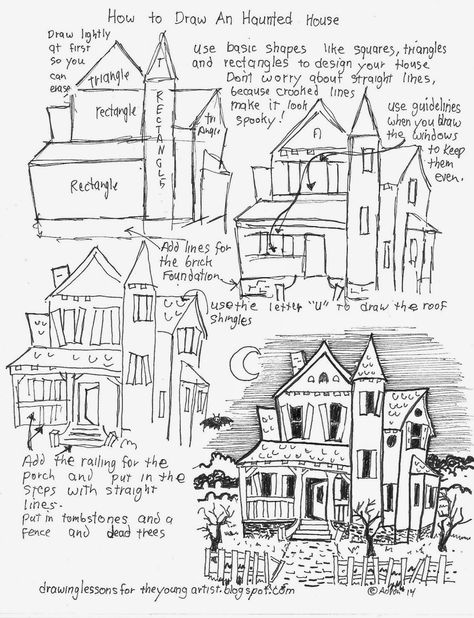 How to Draw An Haunted House
Draw lightly
at first
so you
can
erase
triangle
T
rectangle
RECTANGLES
tri
Angle
Rectangle
use basic shapes like squares, triangles
and rectangles to design your House
Don't worry about straight lines,
because crooked lines
make it look
spooky!
use guidelines
when you draw
the windows
to keep
them
even.
Add lines for
the brick
Foundation
use the letter "U" to draw the roof
shingles
Add the railing for the
porch and put in the
steps with straight
lines.
Put in tombstones and a
fence and dead trees
drawinglessonsfortheyoungartist.blogspot.com